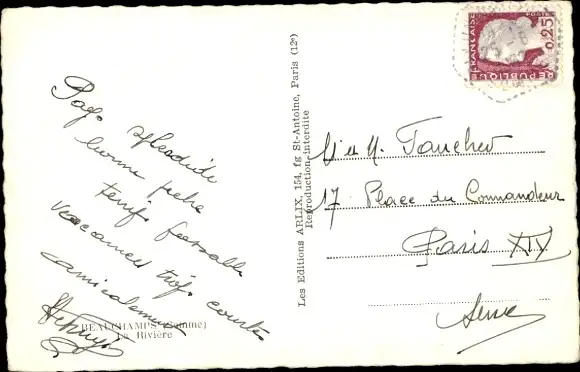 Pays splendide
bonne pêche
temps passable
vacances trop courte
amicalement
BEAUCHAMPS (Somme)
La Rivière
Les Editions ARLIX, 154, fg St-Antoine, Paris (12e)
Reproduction interdite
REPUBLIQUE
FRANÇAISE
POSTES
0,25
M et M. Faucher
17 Place du Commandeur
Paris XIV
Seine